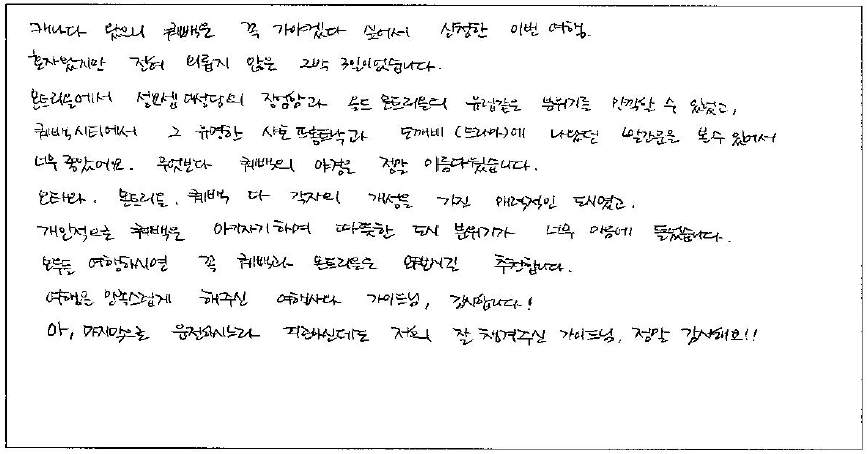 캐나다 왔으니 퀘백은 꼭 가야겠다 싶어서 신청한 이번 여행.
혼자였지만 전혀 외롭지 않은 2박 3일이었습니다.
몬트리올에서 성요셉 대성당의 장엄함과 올드 몬트리올의 유럽같은 분위기를 만끽할 수 있었고,
퀘백시티에서 그 유명한 샤토 프롱트낙과 도깨비 (드라마)에 나왔던 빨간문을 볼 수 있어서
너무 좋았어요. 무엇보다 퀘백의 야경은 정말 아름다웠습니다.
오타와, 몬트리올, 퀘백 다 각자의 개성을 가진 매력적인 도시였고,
개인적으로 퀘백은 아기자기하며 따뜻한 도시 분위기가 너무 마음에 들었습니다.
모두들 여행하시면 꼭 퀘백과 몬트리올은 와보시길 추천합니다.
여행을 만족스럽게 해주신 여행사와 가이드님, 감사합니다!
아, 마지막으로 운전하시느라 피곤하신데도 저희 잘 챙겨주신 가이드님, 정말 감사해요!!